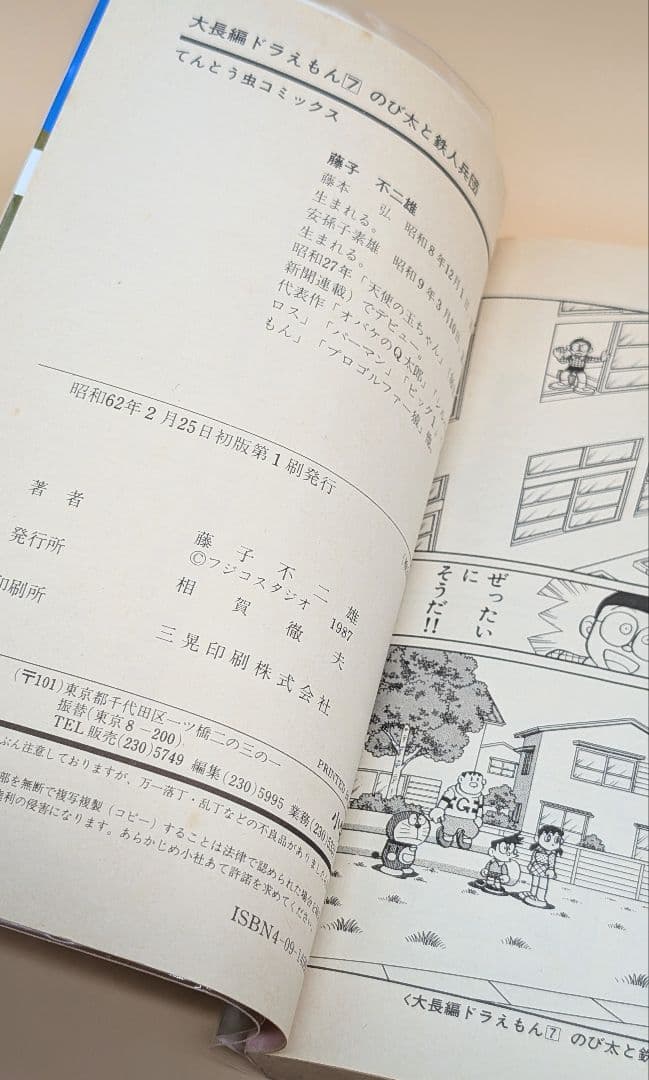 大長編ドラえもん7 のび太と鉄人兵団
てんとう虫コミックス
藤子 不二雄
藤本 弘 昭和8年12月1日
生まれる。
安孫子素雄 昭和9年3月10日
生まれる。
昭和27年「天使の玉ちゃん」
新聞連載)でデビュー。
代表作「オバケのQ太郎」
ロス」「パーマン」「ビッグ1」
もん」「プロゴルファー猿」
昭和62年2月25日初版第1刷発行
著者 藤子不二雄
©フジコスタジオ 1987
発行所 相賀徹夫
印刷所 三晃印刷株式会社
PRINTED
(〒101)東京都千代田区一ツ橋二の三の一
振替(東京8-200)
TEL販売(230)5749 編集(230)5995 業務(230)
ぶん注意しておりますが、万一落丁・乱丁などの不良品がありましたら
部を無断で複写複製(コピー)することは法律で認められた場合
権利の侵害になります。あらかじめ小社あて許諾を求めてください。
ISBN4-09-14
ぜったい
に
そうだ!!
〈大長編ドラえもん7 のび太と鉄